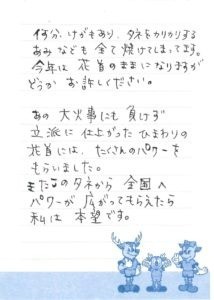 何分、けがもあり、タネをカリカリする
あみなども全て焼けてしまってます。
今年は 花首のままになりますが
どうか お許しください。
あの 大火事にも 負けず
立派に 仕上がった ひまわりの
花首には、たくさんのパワーを
もらいました。
またこのタネから 全国へ
パワーが 広がってもらえたら
私は 本望です。